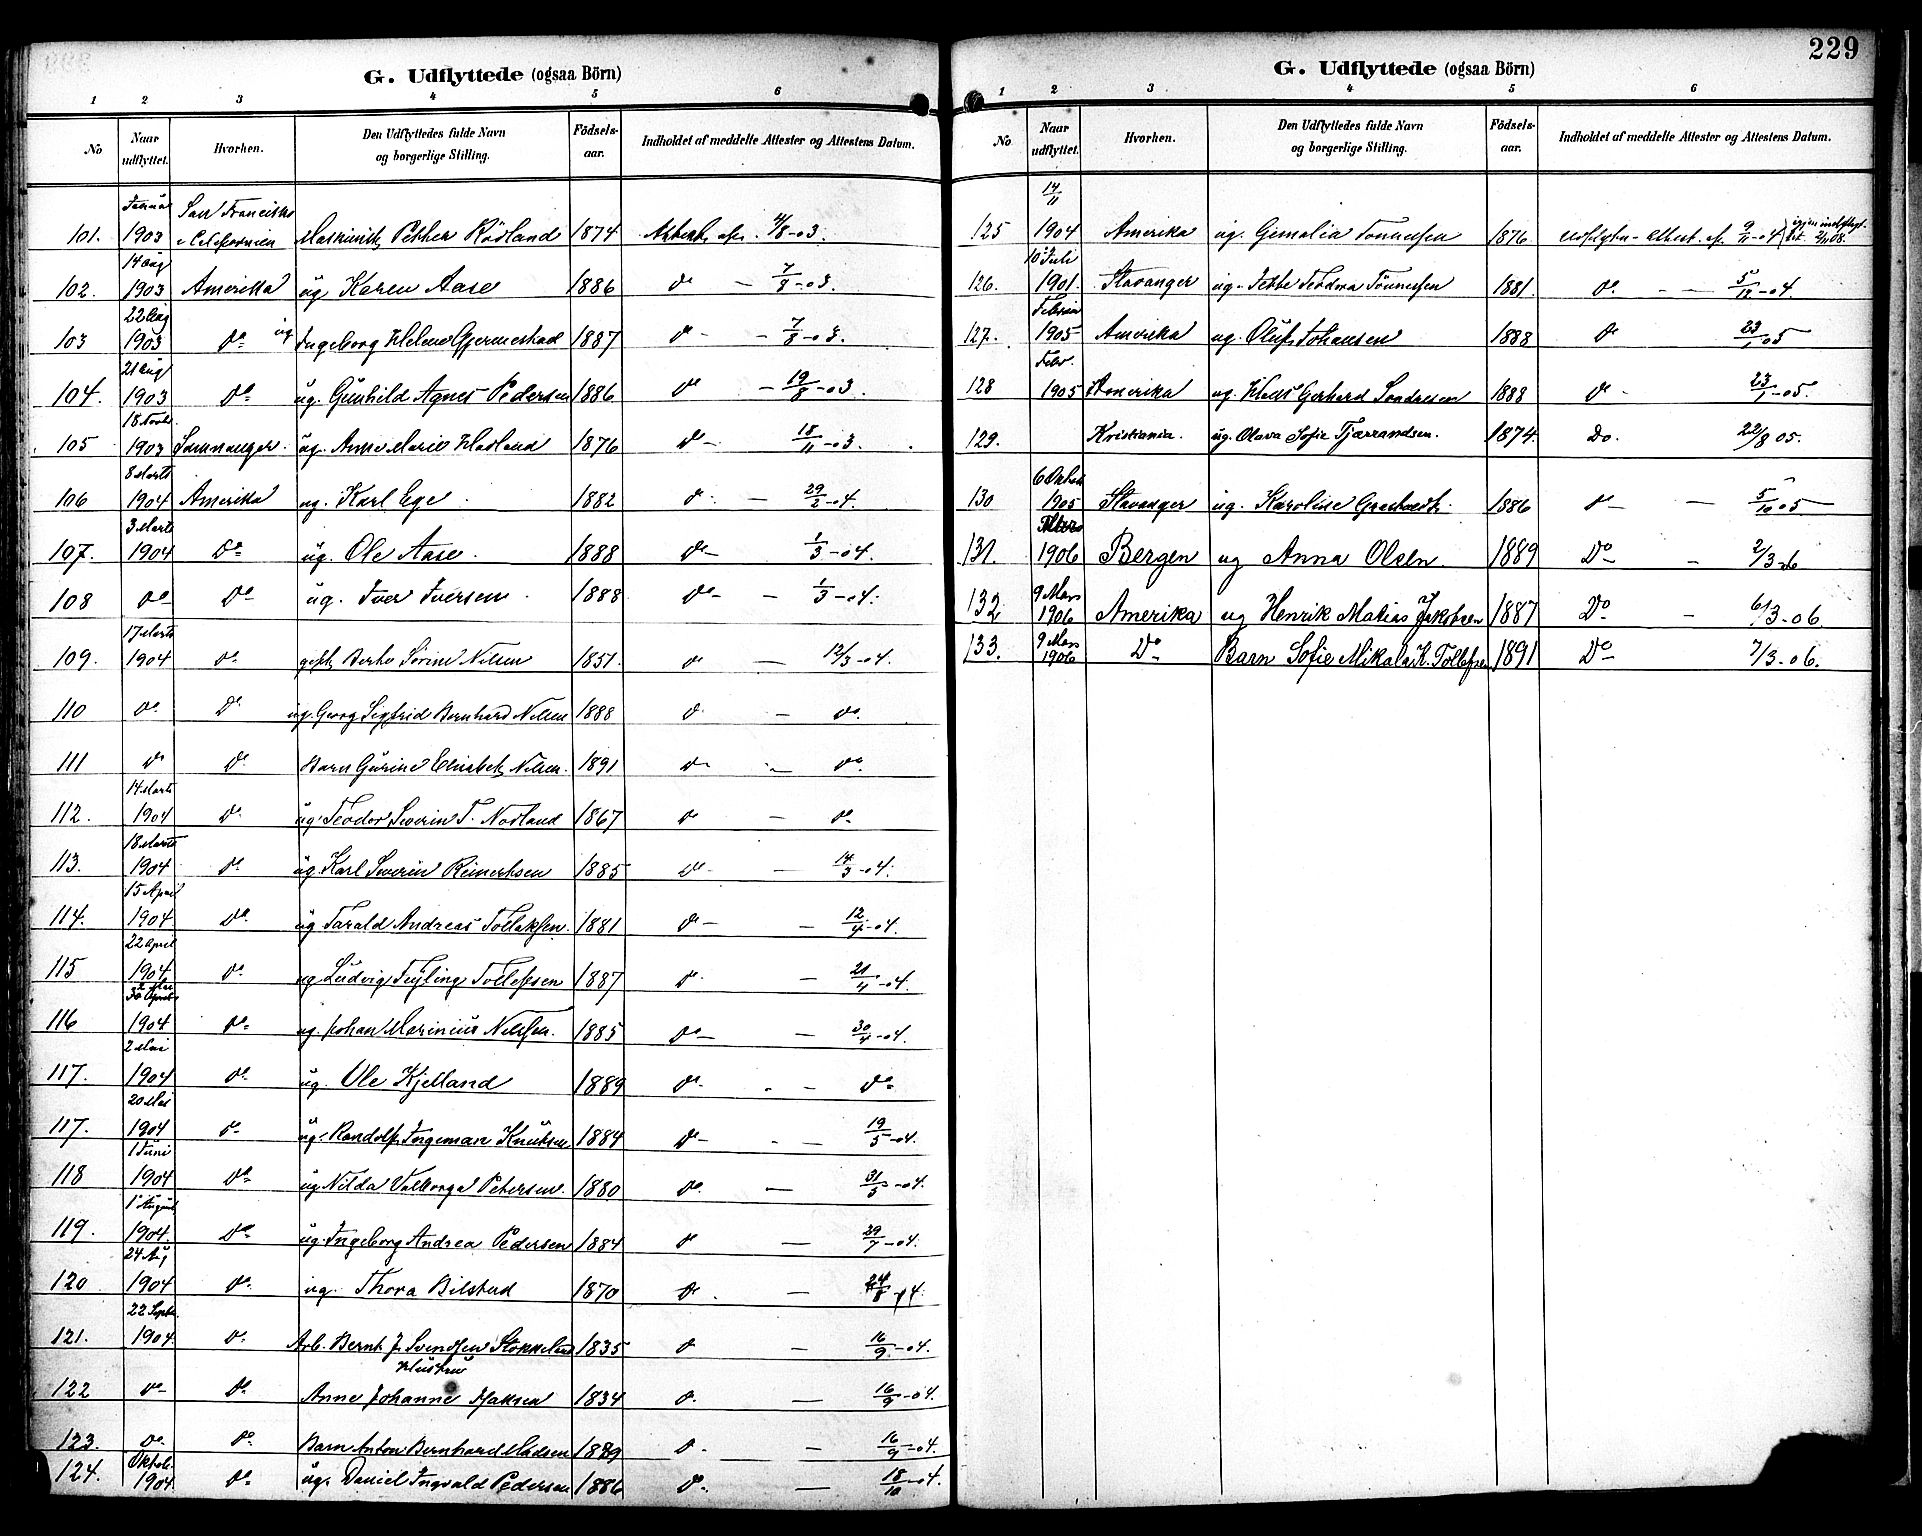 G. Udflyttede (ogsaa Börn)
1 2 3 4 5 6
No Naar udflyttet. Hvorhen. Den Udflyttedes fulde Navn og borgerlige Stilling. Födsels-aar. Indholdet af meddelte Attester og Attestens Datum.
101. 1903 San Francisko Petter Rödland 1874 4/8-03.
102. 14 Aug 1903 Amerika ug Karen Aase 1886 do - 7/8-03.
103 22 Aug 1903 do ug Ingeborg Helene Gjermestad 1887 do - 7/8-03.
104. 21 Aug 1903 do ug. Gunhild Agnes Pedersen 1886 do - 19/8-03.
105 18 Novb 1903 ug. Anne Marie Hadland 1876 do - 18/11-03.
106 8 Marts 1904 Amerika ug. Karl Ege 1882 do - 29/2-04.
107. 3 Marts 1904 do ug. Ole Aase. 1888 do - 1/3-04.
108 do do ug. Iver Iversen 1888 do - 1/3-04.
109. 17 Marts 1904 do gift Berte Sörine Nilsen 1851. do - 12/3-04.
110 do do ug. Georg Sigfrid Bernhard Nilsen 1888 do - do
111 do do Barn Gurine Elisabet Nilsen. 1891 do - do
112. 14 Marts 1904 do ug. Teodor Severin T. Nodland 1867 do - do
113. 18 Marts 1904 do ug. Karl Severin Reinertsen 1885 do - 14/3-04.
114. 15 April 1904 do ug Tarald Andreas Tollaksen. 1881 do - 12/4-04.
115 22 April 1904 do ug Ludvig Tollefsen 1887 do - 21/4-04.
116 1904 do ug. Johan Marinius Nilsen. 1885 do - 30/4-04.
117. 2 Mai 1904 do ug. Ole Kjelland 1889 do - do
117. 20 Mai 1904 do ug. Randolf Ingeman Knutsen 1884 do - 19/5-04.
118 1 Juni 1904 do ug Nilda Valborga Petersen. 1880 do - 31/5-04.
119. 1 August 1904. do ug. Ingeborg Andrea Pedersen 1884 do - 29/7-04.
120 24 Aug 1904 do ug. Thora Bilstad 1870 do - 24/8-04.
121. 22 Septbr 1904. do Arb. Bernt J. Svendsen Stokkeland 1835 do - 16/9-04.
122 do do Hustru Anne Johanne Isaksen 1834 do - 16/9-04.
123. do do Barn Anton Bernhard Madsen 1889 do - 16/9-04.
124. Oktob. 1904 do ug. Daniel Ingvald Pedersen 1886 do - 18/10-04.
229
G. Udflyttede (ogsaa Börn)
1 2 3 4 5 6
No Naar udflyttet. Hvorhen. Den Udflyttedes fulde Navn og borgerlige Stilling. Födsels-aar. Indholdet af meddelte Attester og Attestens Datum.
125 14/11 1904 Amerika ug. Gemalia Tönnesen 1876 9/11-04
126. 10 Juli 1901. Stavanger ug. Teodora Tönnesen 1881. do - 5/12-04.
127. Februar 1905 Amerika ug. Oluf Johansen 1888 do 23/1-05
128 Febr. 1905 Amerika ug. Klaus Gerhard Sondresen 1888 do - 23/1-05.
129. Kristiania. ug. Olava Sofie Tjærrandsen. 1874. Do. 22/8 05.
130 6 Oktob 1905 Stavanger ug. Karoline 1886 do - 5/10 05
131. Mars 1906 Bergen ug Anna Olsen. 1889 Do - 2/3-06
132. 9 Mars 1906 Amerika ug Henrik Matias Jakobsen 1887 Do - 6/3-06.
133. 9 Mars 1906 Do Barn Sofie Mikala K. Tollefsen 1891 Do 7/3-06.